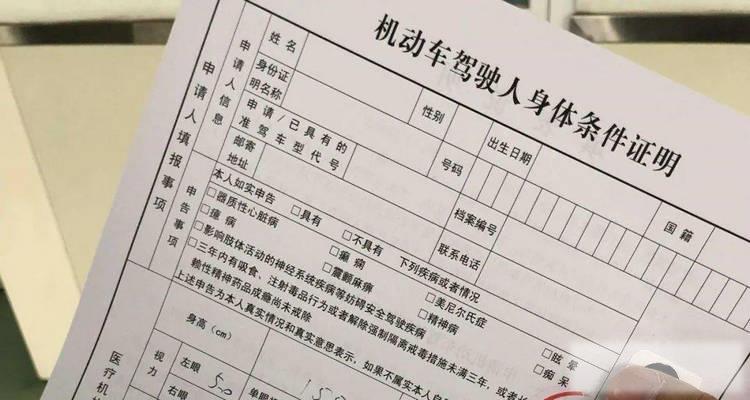 机动车驾驶人身体条件证明
申请人填报事项
申请人信息
姓名
性别
出生日期
国籍
身份证
明名称
号码
申请/已具有的
准驾车型代号
档案编号
邮寄
地址
联系电话
申告事项
本人如实申告 □具有 □不具有 下列疾病或者情况
□器质性心脏病 □癫痫 □美尼尔氏症 □眩晕
□癔病 □震颤麻痹 □精神病 □痴呆
□影响肢体活动的神经系统疾病等妨碍安全驾驶疾病
□三年内有吸食、注射毒品行为或者解除强制隔离戒毒措施未满三年，或者长
赖性精神药品成瘾尚未戒除
上述申告为本人真实情况和真实意思表示，如果不属实本人自
医疗机
身高（cm）
视力
左眼
5.0
右眼
单眼